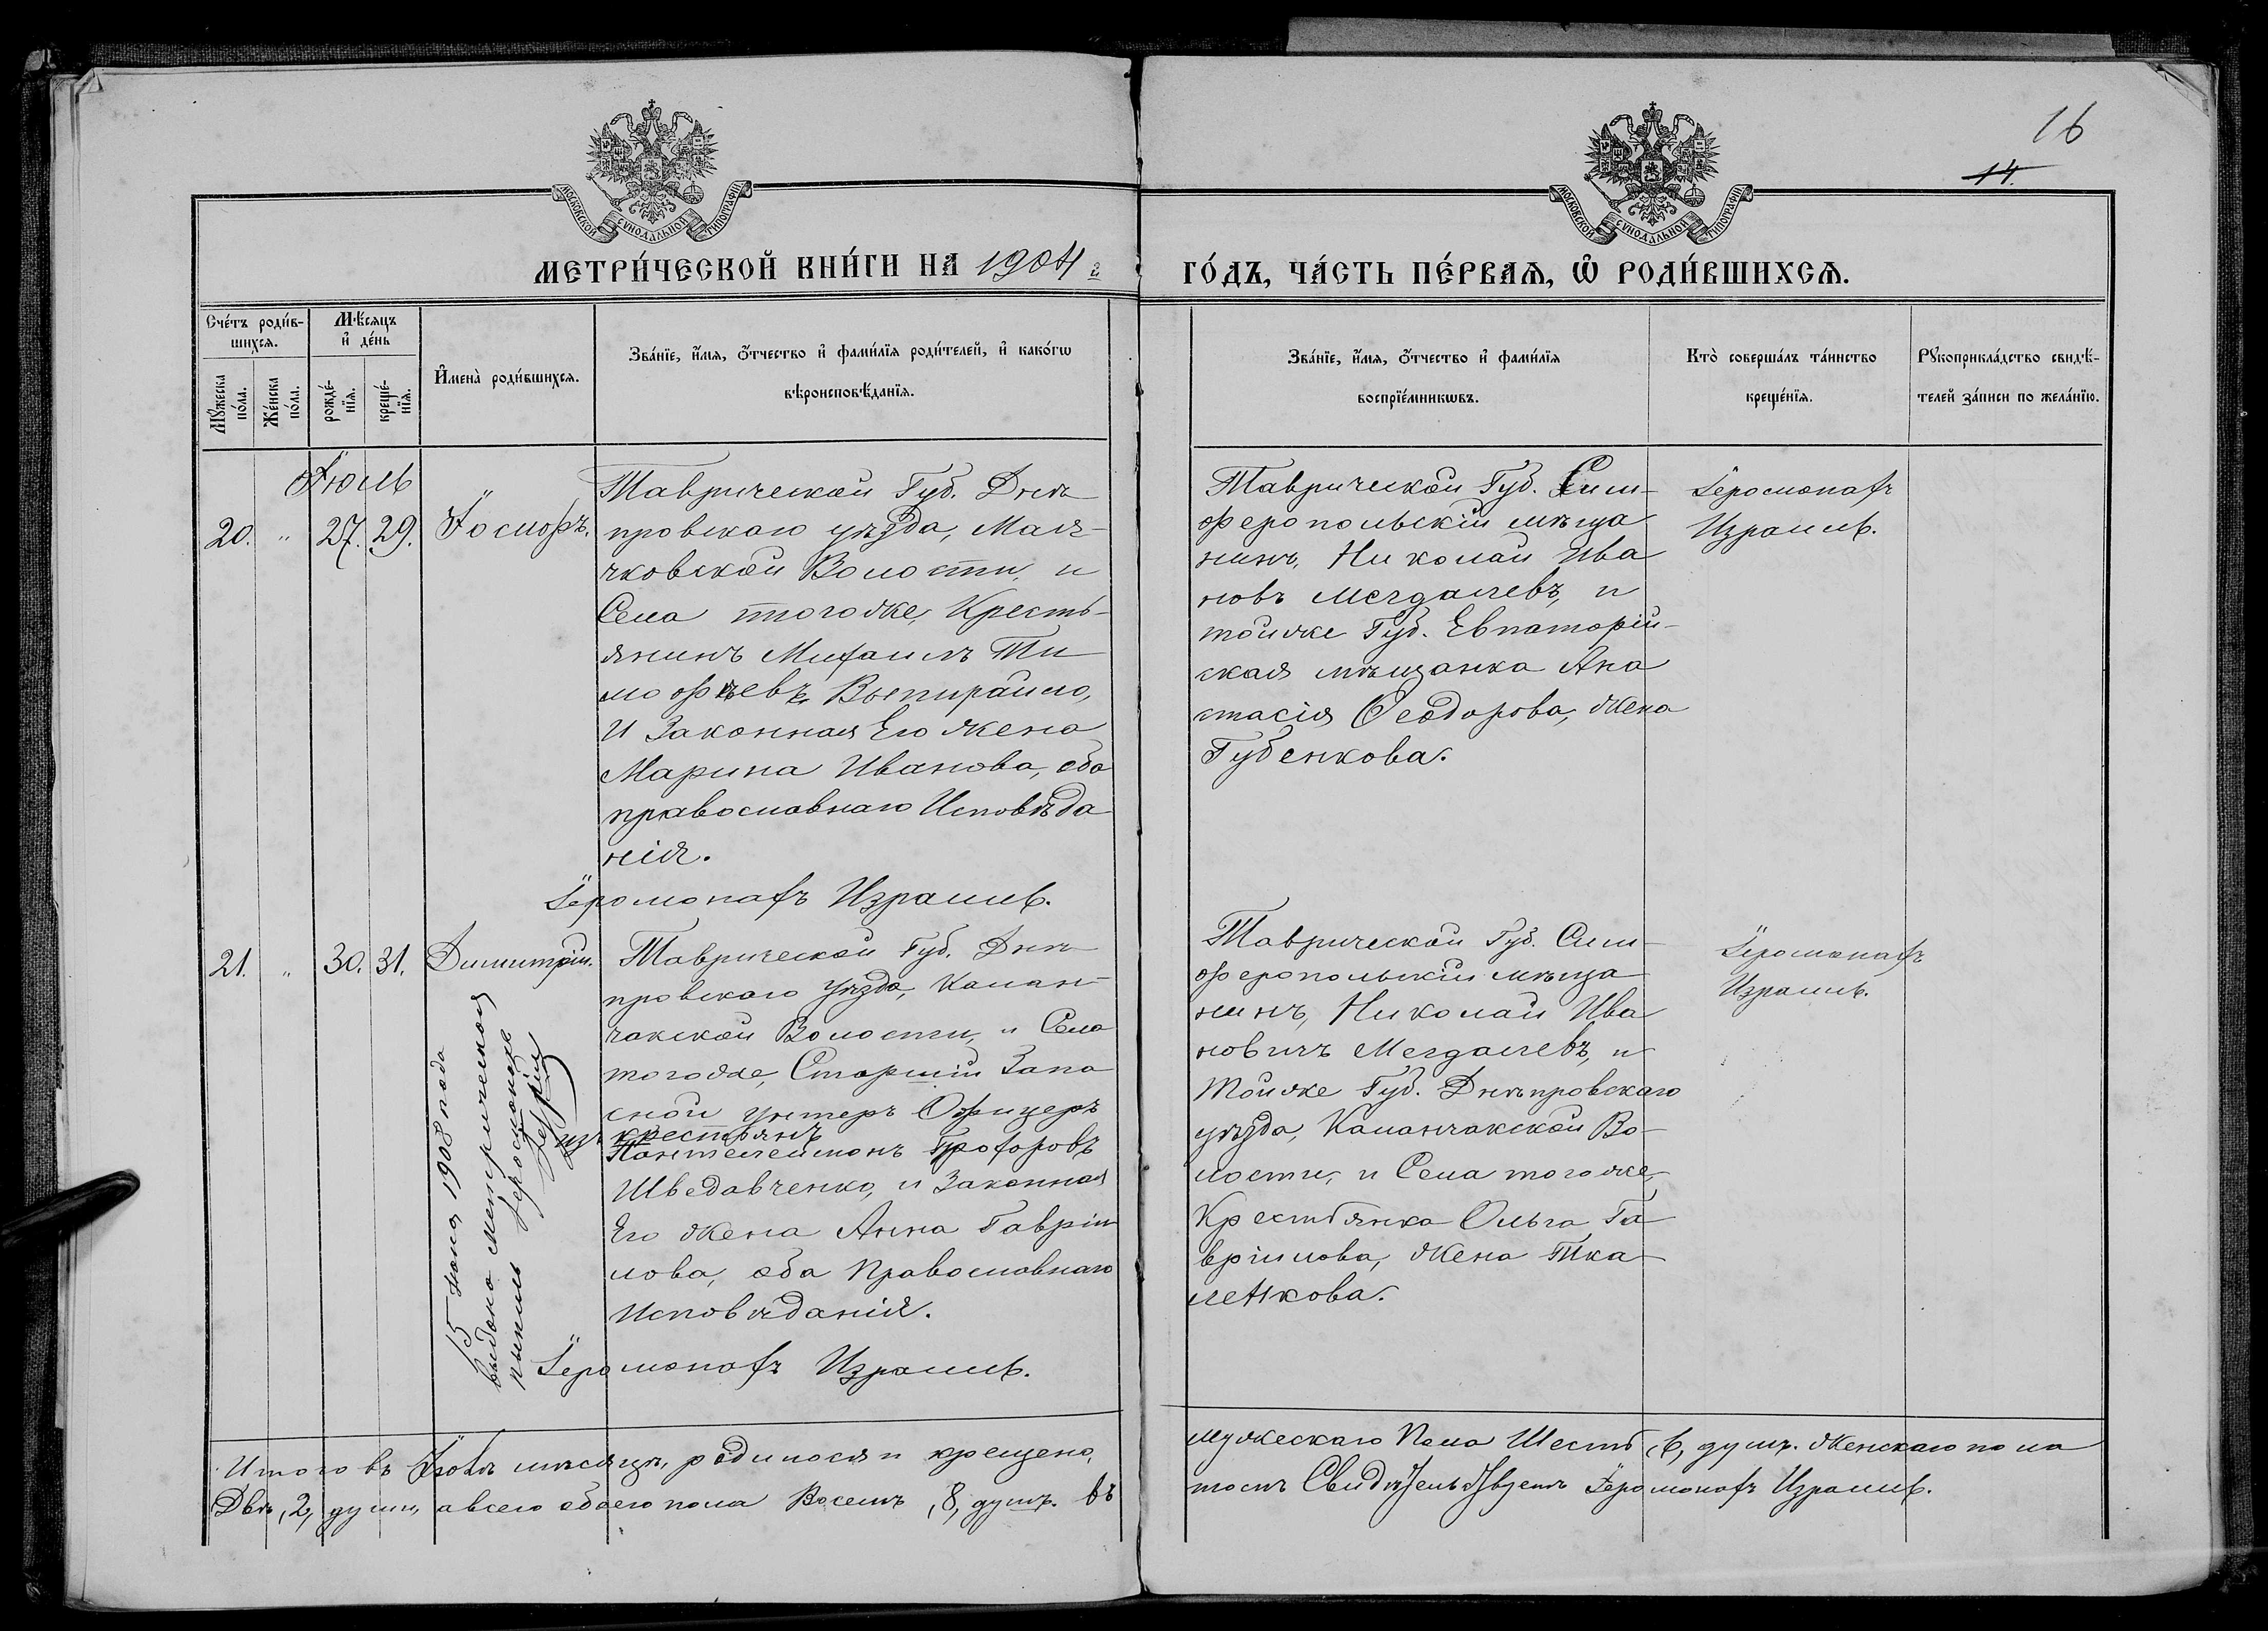 16
14.
МОСКОВСКОЙ СѴНОДАЛЬНОЙ ТИПОГРАФІИ
МОСКОВСКОЙ СѴНОДАЛЬНОЙ ТИПОГРАФІИ
МЕТРИ́ЧЕСКОЙ КНИ́ГИ НА 1904 г.
ГО́ДЪ, ЧА́СТЬ ПЕ́РВАЯ, Ѽ РОДИ́ВШИХСЯ.
Сче́тъ роди́вшихся.
Мꙋ́жеска по́ла.
Же́нска по́ла.
Мѣ́сяцъ и҆ де́нь
рожде́нїя.
креще́нїя.
И҆мена̀ роди́вшихся.
Зва́нїе, и҆́мя, ѻ҆́тчество и҆ фами́лїя роди́телей, и҆ како́гѡ
вѣроисповѣ́данїя.
Зва́нїе, и҆́мя, ѻ҆́тчество и҆ фами́лїя
воспрїе́мникѡвъ.
Кто̀ соверша́лъ та́инство
креще́нїя.
Рꙋкоприкла́дство свидѣ́-
телей за́писи по жела́нїю.
Іюль
20. " 27. 29.
Таврической Губ. Днѣ
провскаго уѣзда, Мая-
чковской Волости, и
Села тогоже, Кресть-
янинъ Михаилъ Ти
мофѣевъ Выпирайло,
И Законная Его жена
Марина Иванова, оба
православнаго Исповѣда
нія.
Іеромонахъ Израиль.
Таврической Губ. Сим-
феропольскій мѣща
нинъ, Николай Ива
новъ Мегдалевъ, и
тойже Губ. Евпаторій-
ская мѣщанка Ана
стасія Ѳеодорова, жена
Губенкова.
Іеромонахъ
Израиль.
21. " 30. 31. Димитрій.
Таврической Губ. Днѣ
провскаго Уѣзда, Калан-
чакской Волости, и Села
тогоже, Старшій Запа
сной унтеръ Офицеръ
изъ крестьянъ
Пантелеимонъ Прохоровъ
Шведавченко, и Законная
Его жена Анна Гавріи
лова, оба Православнаго
Исповѣданія.
Іеромонахъ Израиль.
15 1908 года
выдана метрическая
Іеромонахъ
Таврической Губ. Сим-
феропольскій мѣща
нинъ, Николай Ива
новичъ Мегдалевъ, и
Тойже Губ. Днѣпровскаго
уѣзда, Каланчакской Во-
лости, и Села тогоже,
Крестьянка Ольга Га
вріилова, жена Тка
ленкова.
Іеромонахъ
Израиль.
Итого въ Іюлѣ мѣсяцѣ, родилося и крещено,
мужескаго Пола Шесть, 6, душъ. Женскаго пола
Двѣ, 2, души, а всего обоего пола Восемъ, 8, душъ. въ
томъ Свидѣтельствуетъ Іеромонахъ Израиль.